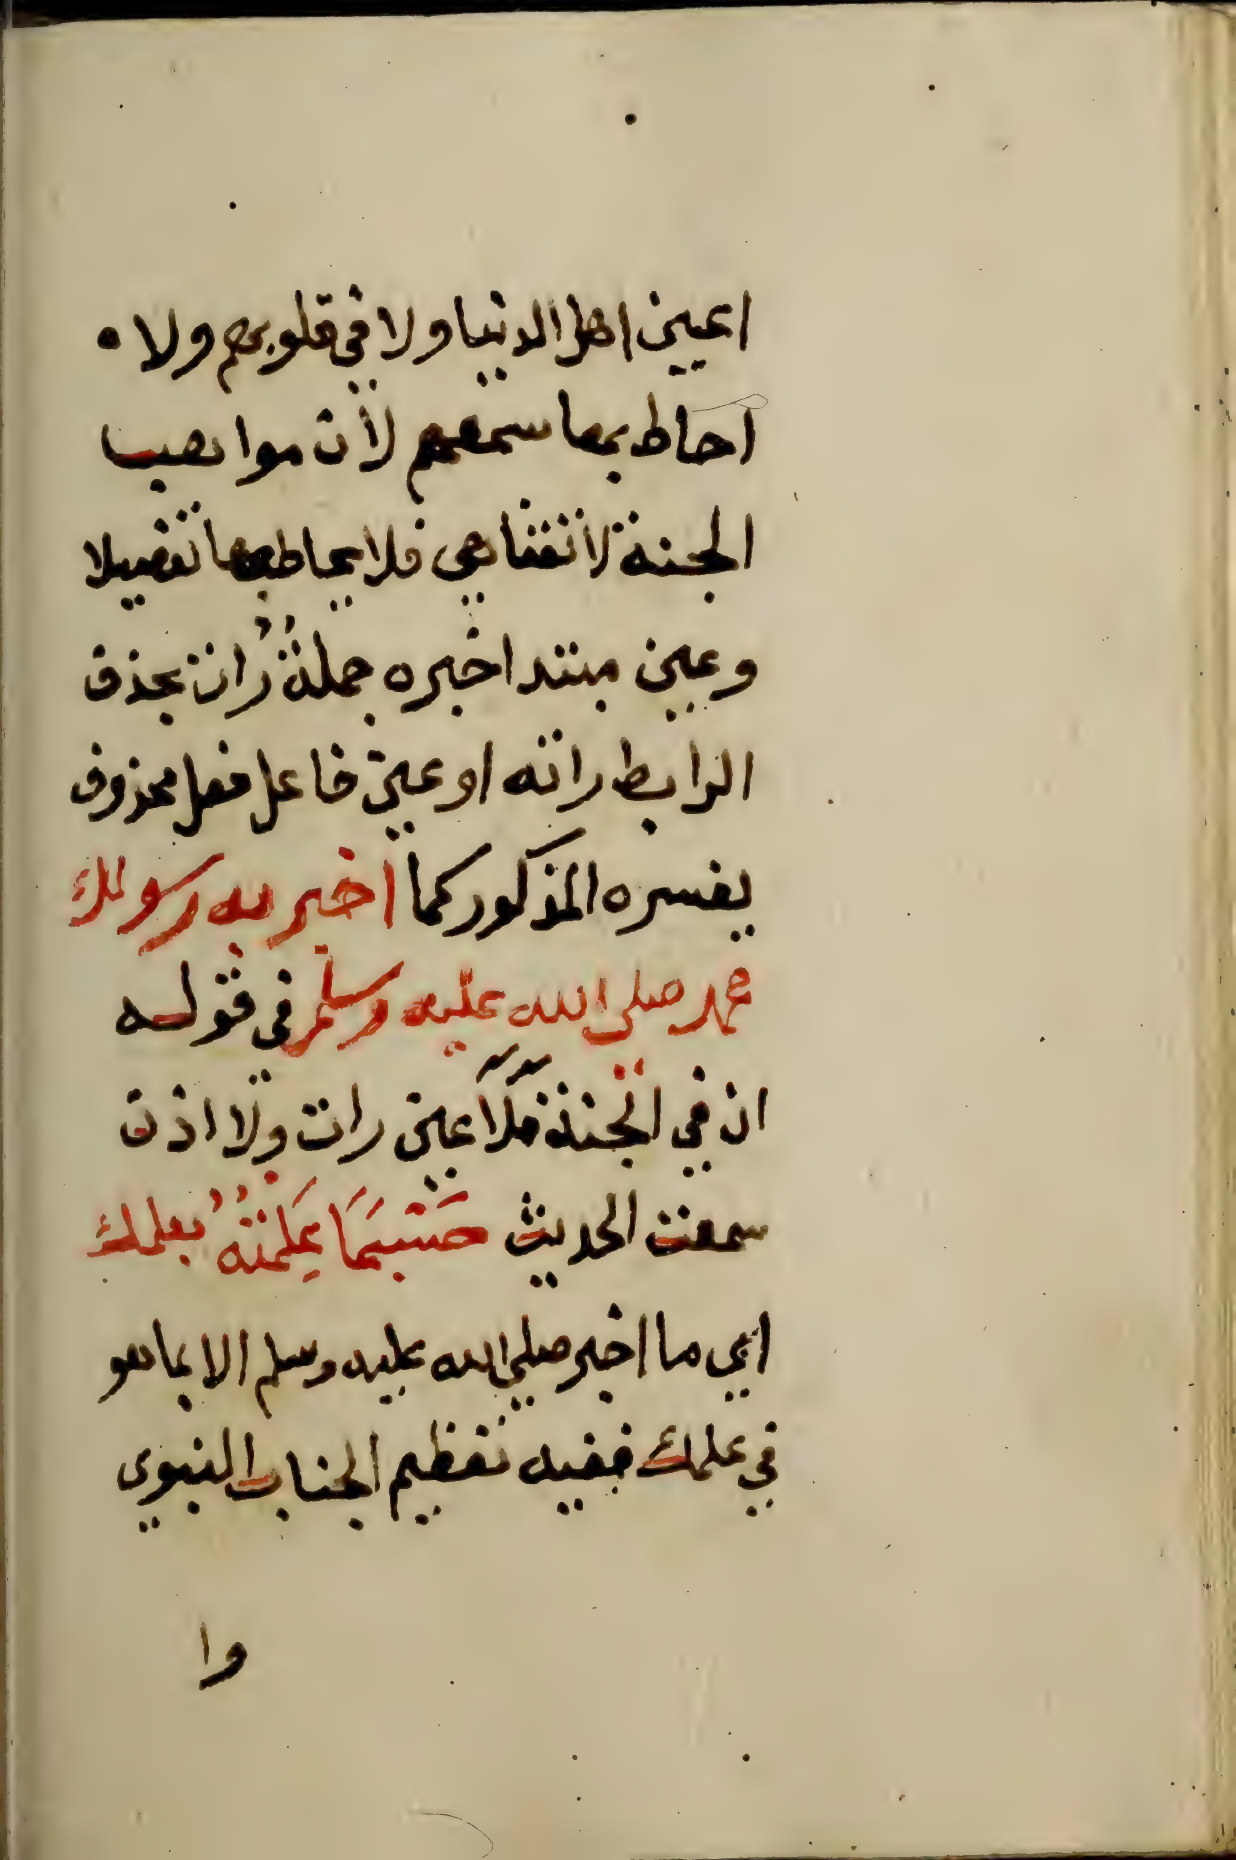 اعين اهل الدنيا ولا في قلوبهم ولا ه
احاط بها سمعهم لان مواهب
الجنة لا تتناهي فلا يحاط بها تفصيلا
وعين مبتدا خبره جملةُ رات بحذف
الرابط راته او عين فاعل فعل محذوف
يفسره المذكور كما اخبر به رسولك
محمد صلى الله عليه وسلم في قوله
ان في الجنة مالا عين رات ولا اذن
سمعت الحديث حَسْبَمَا عَلِمْتَهُ بعلمك
اي ما اخبر صلي الله عليه وسلم الا بما هو
في علمك ففيه تعظيم الجناب النبوي
وا